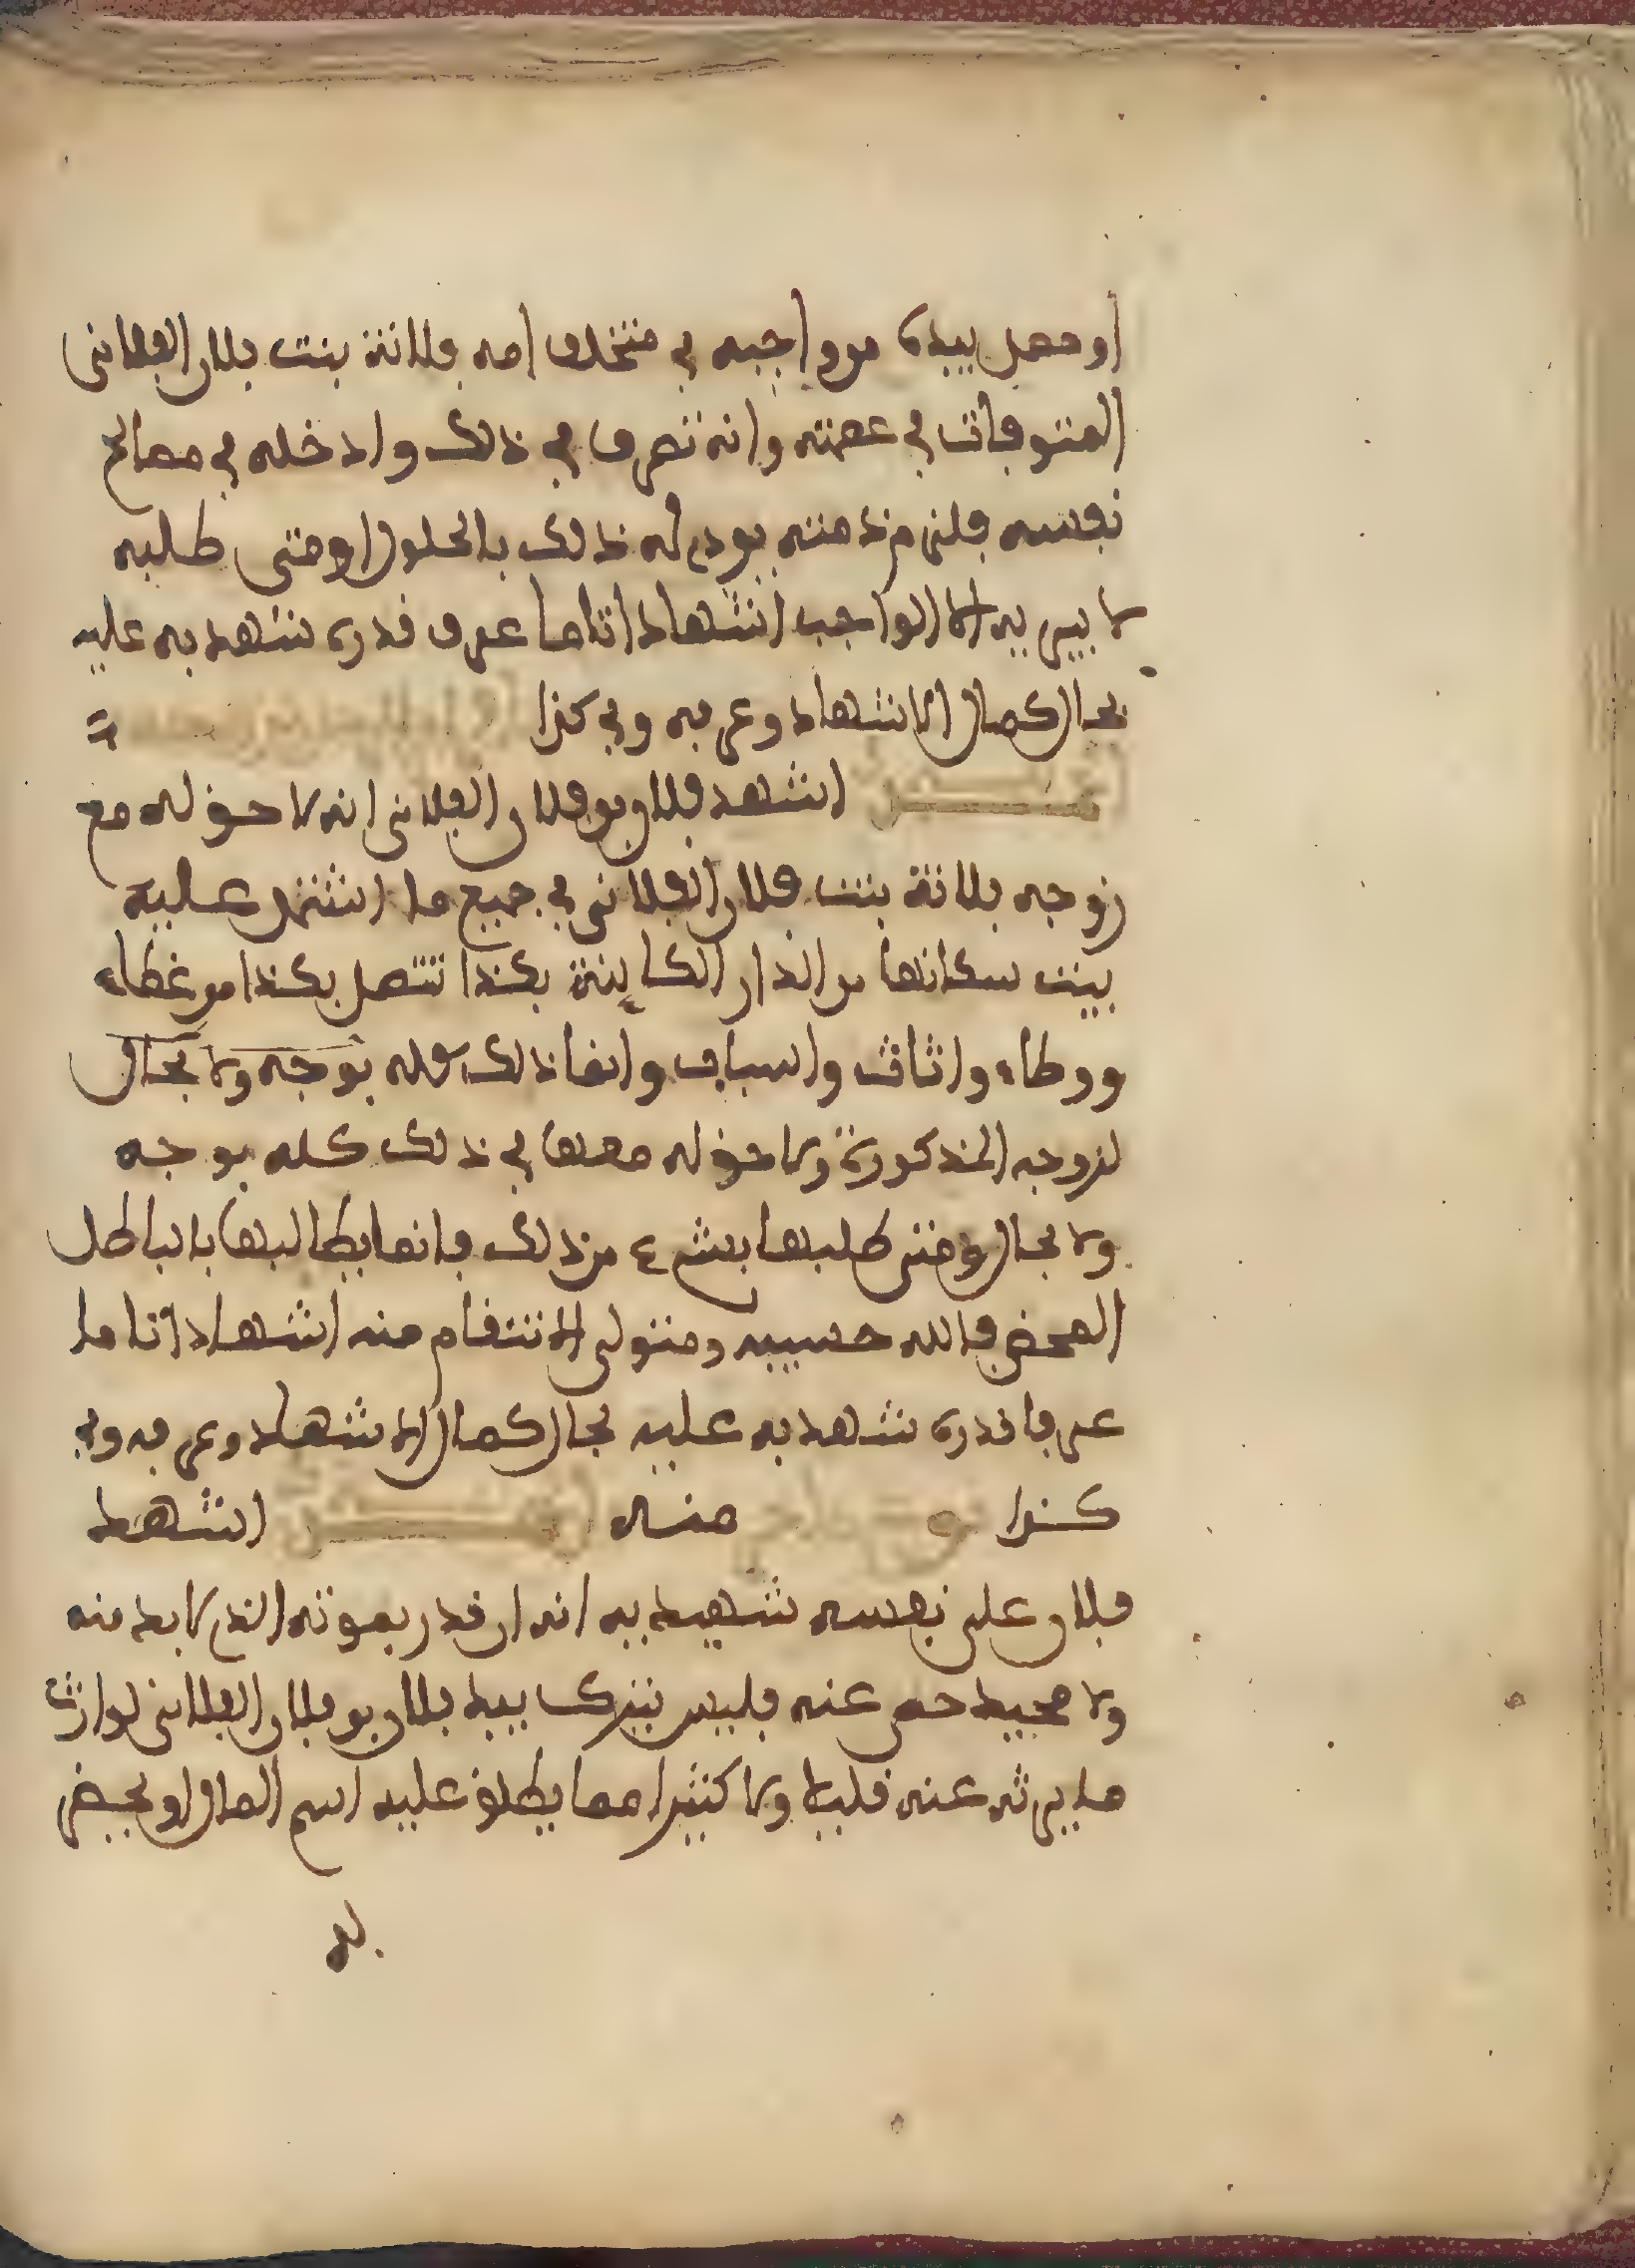 او حصل بيده من واجبه في متخلف امه فلانة بنت فلان الفلاني
المتوفات في عصمته وانه تصرف في ذلك وادخله في مصالح
نفسه فلتر من ذمته يودي له ذلك بالحلول او متى طلبه
لا يبريه الا الواجب اشهادا تاما عرف قدره شهد به عليه
بحال كمال الاشهاد وعرفه وفي كذا
اشهد فلان بن فلان الفلاني انه لا حق له مع
زوجه فلانة بنت فلان الفلاني في جميع ما اشتمل عليه
بيت سكانها من الدار الكاينة بكذا تتصل بكذا من غطاء
ووطاء واثاث واسباب وانما ذلك كله بوجه ولا بحال
لزوجه المذكورة ولا حق له معها في ذلك كله بوجه
ولا بحال ومتى طلبها بشيء من ذلك فانما يطالبها بالباطل
المحض فالله حسيبه ومتولى الانتقام منه اشهادا تاما
عرفا قدره شهد به عليه بحال كمال الاشهاد وعرفه وفي
كذا منه اشهد
فلان على نفسه شهيديه انه ان قدر بموته الذي لا بد منه
ولا محيد حي عنه فليس يترك بيد فلان بن فلان الفلاني لوارث
ما يرثه عنه قليلا ولا كثيرا مما يطلق عليه اسم المال او بعض
له